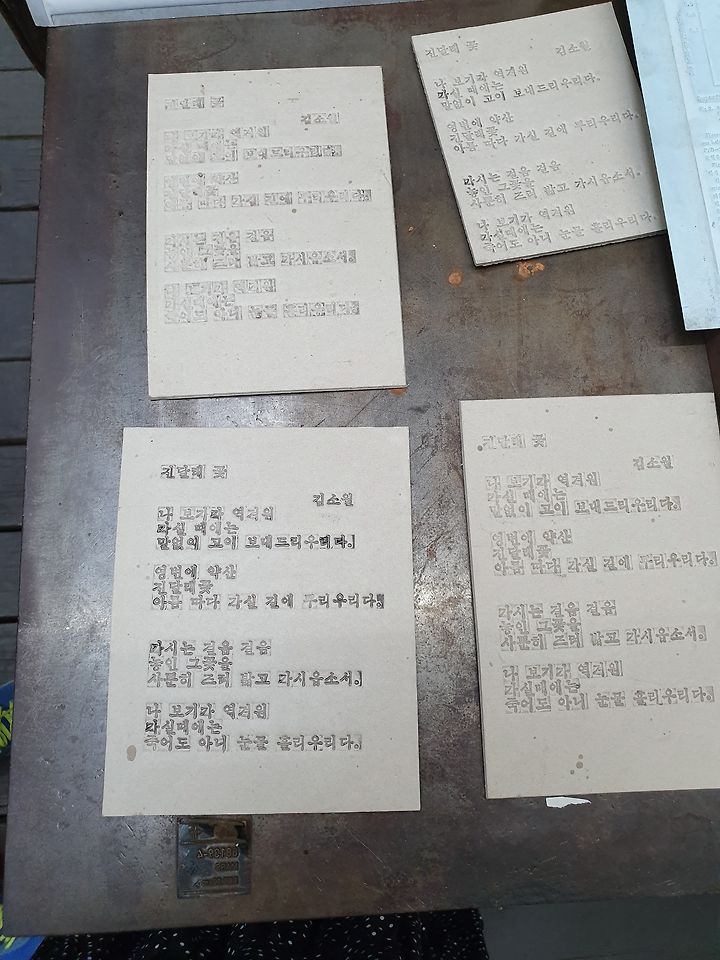 진달래 꽃
김소월
나 보기가 역겨워
보내드리우리다.
영변에 약산
가실 길에 뿌리우리다.
걸음 걸음
밟고 가시옵소서.
나 보기가 역겨워
죽어도 아니 눈물 흘리우리다.
진달래 꽃 김소월
나 보기가 역겨워
가실 때에는
말없이 고이 보내드리우리다.
영변에 약산
진달래꽃
아름 따다 가실 길에 뿌리우리다.
가시는 걸음 걸음
놓인 그꽃을
사뿐히 즈려 밟고 가시옵소서.
나 보기가 역겨워
가실때에는
죽어도 아니 눈물 흘리우리다.
진달래 꽃
김소월
나 보기가 역겨워
가실 때에는
말없이 고이 보내드리우리다.
영변에 약산
진달래꽃
아름 따다 가실 길에 뿌리우리다.
가시는 걸음 걸음
놓인 그꽃을
사뿐히 즈려 밟고 가시옵소서.
나 보기가 역겨워
가실때에는
죽어도 아니 눈물 흘리우리다.
진달래 꽃
김소월
나 보기가 역겨워
가실 때에는
말없이 고이 보내드리우리다.
영변에 약산
진달래꽃
아름 따다 가실 길에 뿌리우리다.
가시는 걸음 걸음
놓인 그꽃을
사뿐히 즈려 밟고 가시옵소서.
나 보기가 역겨워
가실때에는
죽어도 아니 눈물 흘리우리다.